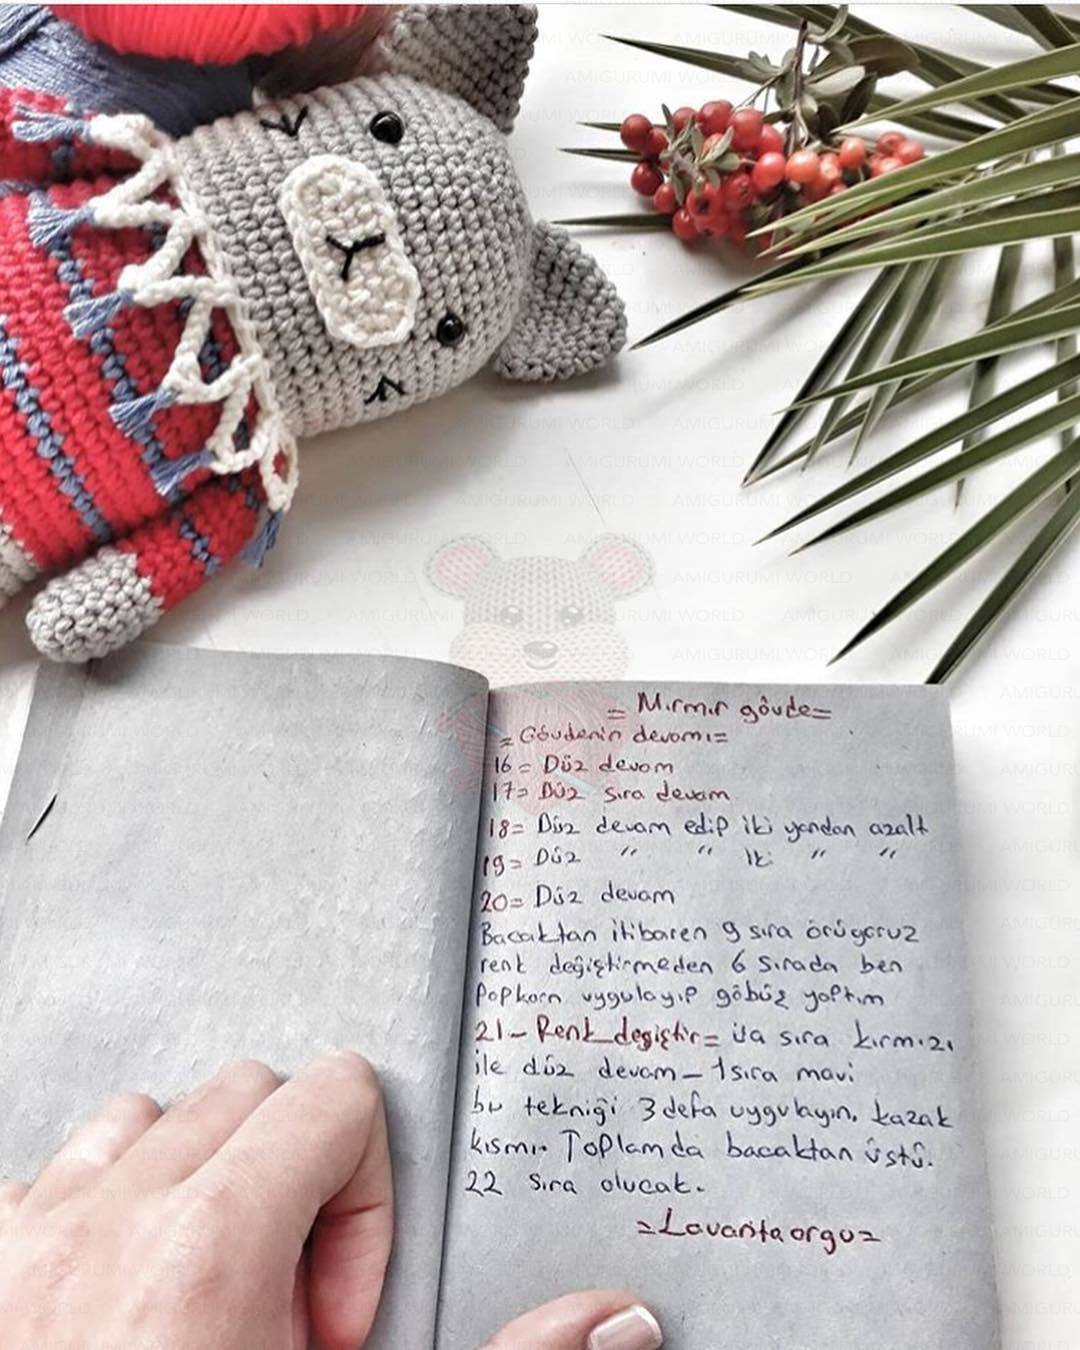 = Mırmır gövde=
= Gövdenin devamı=
16= Düz devam
17= Düz sıra devam
18= Düz devam edip iki yandan azalt
19= Düz " " iki " "
20= Düz devam
Bacaktan itibaren 9 sıra örüyoruz
renk değiştirmeden 6 sırada ben
Popkorn uygulayıp göbüş yaptım
21- Renk değiştir= sıra kırmızı
ile düz devam - 1 sıra mavi
bu tekniği 3 defa uygulayın. kazak
kısmı. Toplamda bacaktan üstü.
22 sıra olucak.
=Lavantaorgu=
AMIGURUMI WORLD